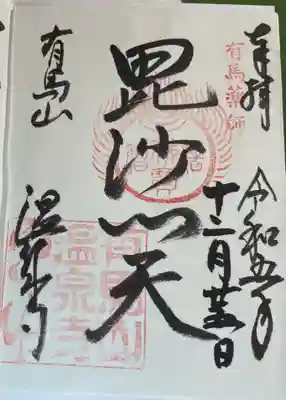 奉拝
有馬薬師
令和五年
十二月廿五日
毘沙門天
有馬山
温泉寺
有馬山
温泉寺